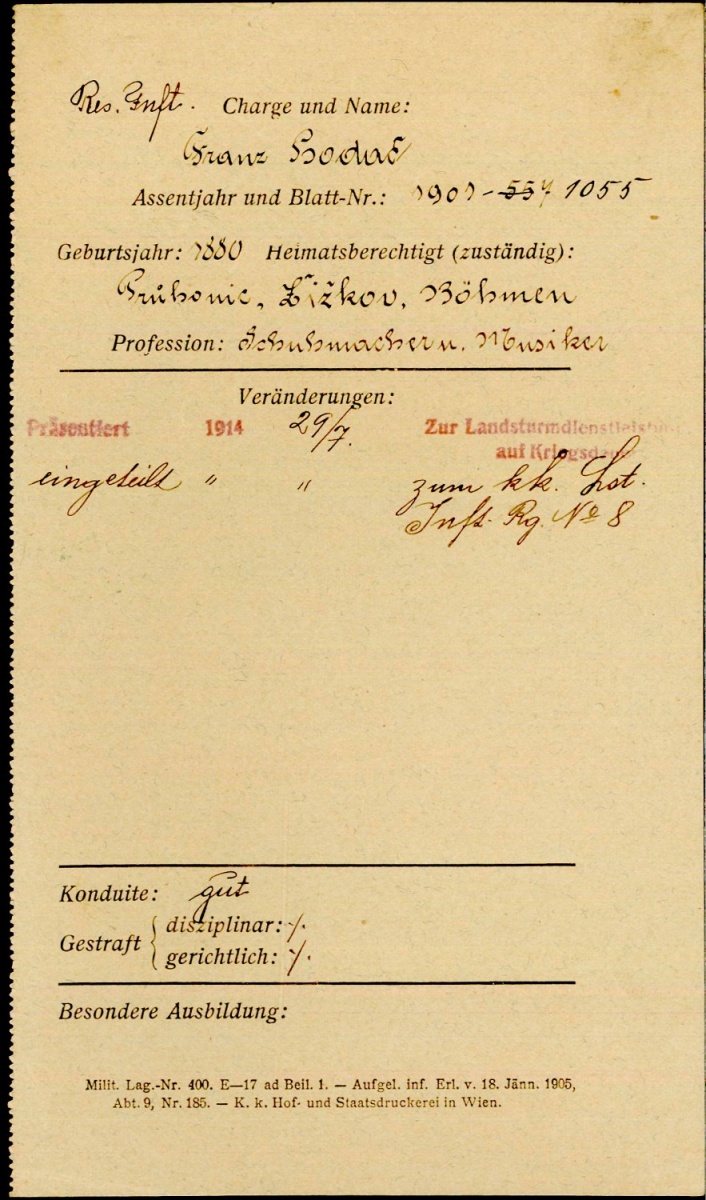 Res. Inft. Charge und Name:
Franz Hodač
Assentjahr und Blatt-Nr.: 1901 - 557 1055
Geburtsjahr: 1880 Heimatsberechtigt (zuständig):
Průhonic, Žižkov, Böhmen
Profession: Schuhmacher u. Musiker
Veränderungen:
Präsentiert 1914 29/7. Zur Landsturmdienstleistung
auf Kriegsdauer
eingeteilt " " zum kk. Lst.
Inft. Rg. No 8
Konduite: gut
Gestraft { disziplinar: ·/·
gerichtlich: ·/·
Besondere Ausbildung:
Milit. Lag.-Nr. 400. E—17 ad Beil. 1. — Aufgel. inf. Erl. v. 18. Jänn. 1905,
Abt. 9, Nr. 185. — K. k. Hof- und Staatsdruckerei in Wien.